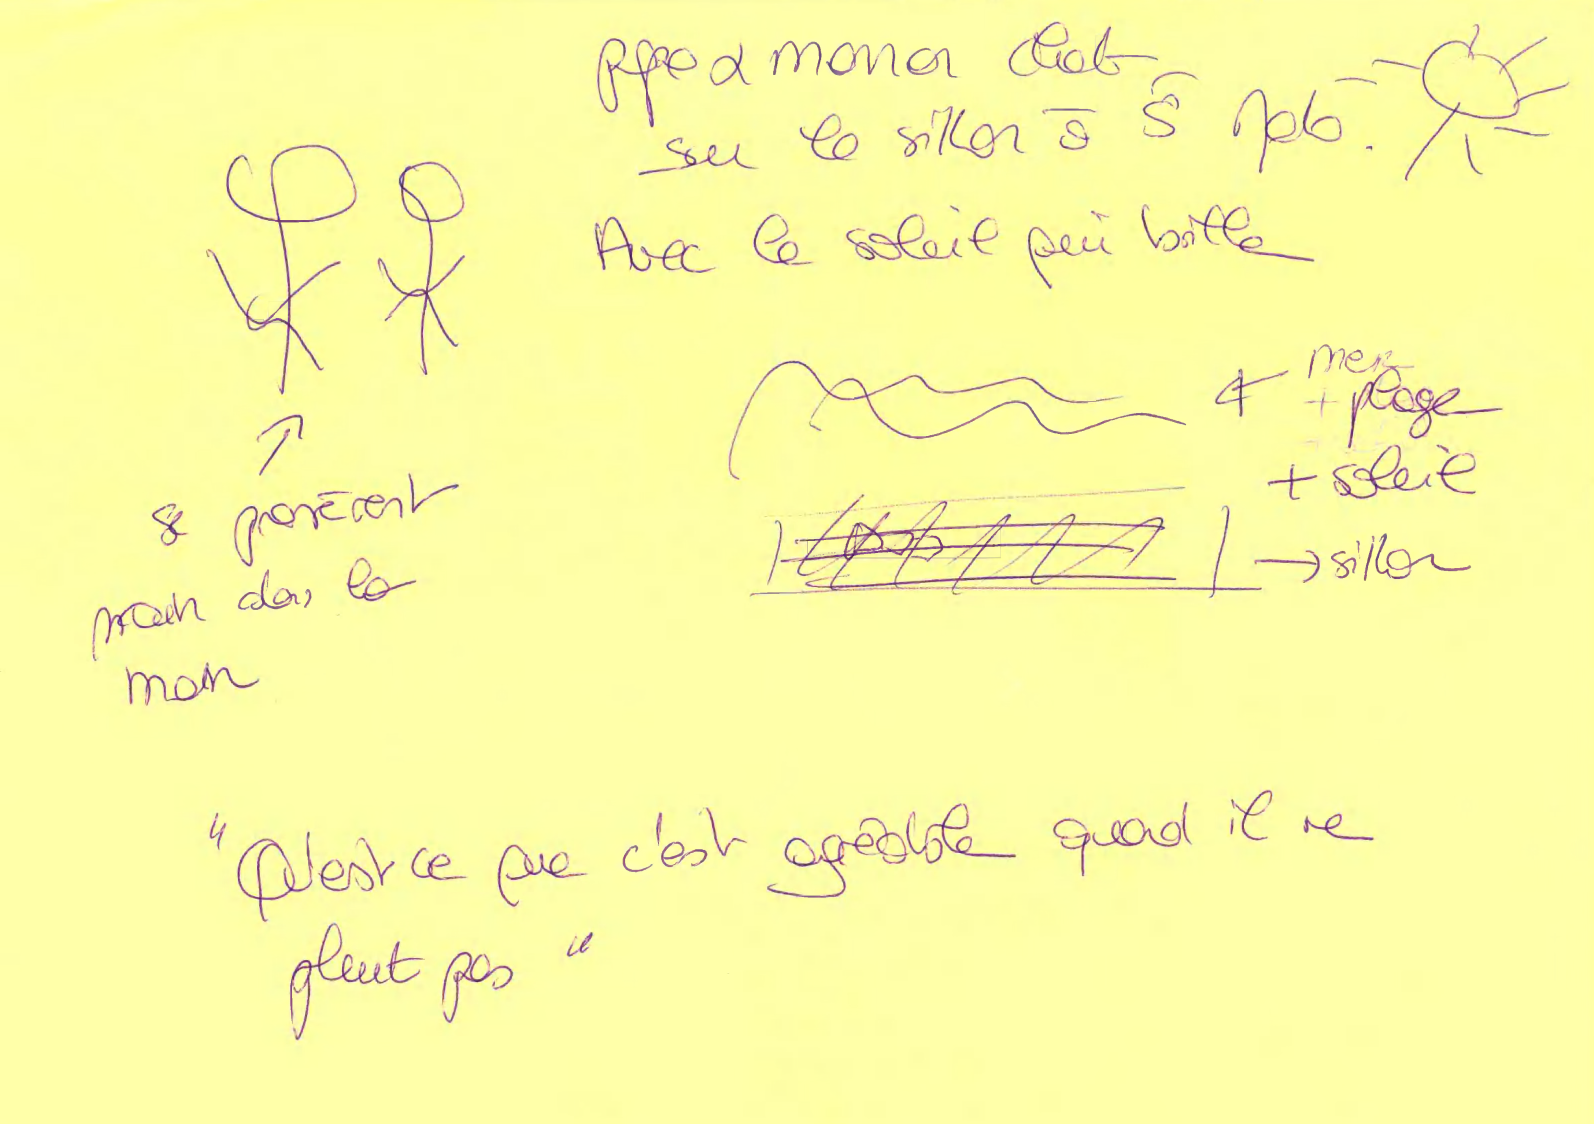 papa & maman chat
sur le sillon à St Malo.
Avec le soleil qui brille
mer
+ plage
+ soleil
→ sillon
se promènent
main dans la
main
"Qu'est ce que c'est agréable quand il ne
pleut pas"